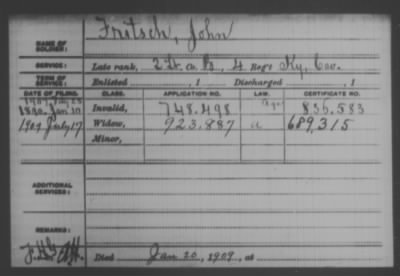 Fritsch, John
NAME OF SOLDIER:
SERVICE: Late rank, 2 Lt. Co. B, 4 Reg't Ky. Cav.
TERM OF SERVICE: Enlisted , 1 Discharged , 1
DATE OF FILING. CLASS. APPLICATION NO. LAW. CERTIFICATE NO.
1907,
1890. Jan 10 Invalid, 748.498 836.583
1909 July 17 Widow, 923.887 a 689,315
Minor,
ADDITIONAL SERVICES:
REMARKS:
Died Jan 20, 1909, at